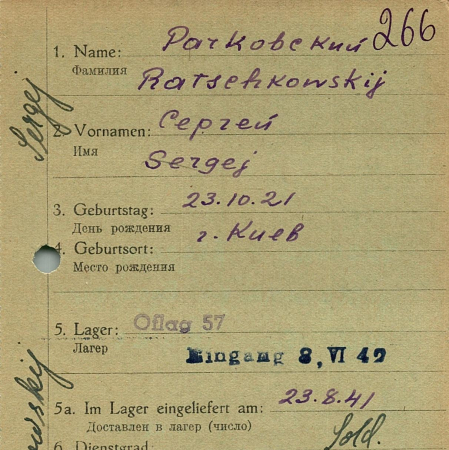 266
1. Name: Рачковский
Фамилия Ratschkowskij
2. Vornamen: Сергей
Имя Sergej
3. Geburtstag: 23.10.21
День рождения
4. Geburtsort: г. Киев
Место рождения
5. Lager: Oflag 57
Лагер
Eingang 8, VI 42
5a. Im Lager eingeliefert am: 23.8.41
Доставлен в лагер (число)
6. Dienstgrad: Sold.
Sergej